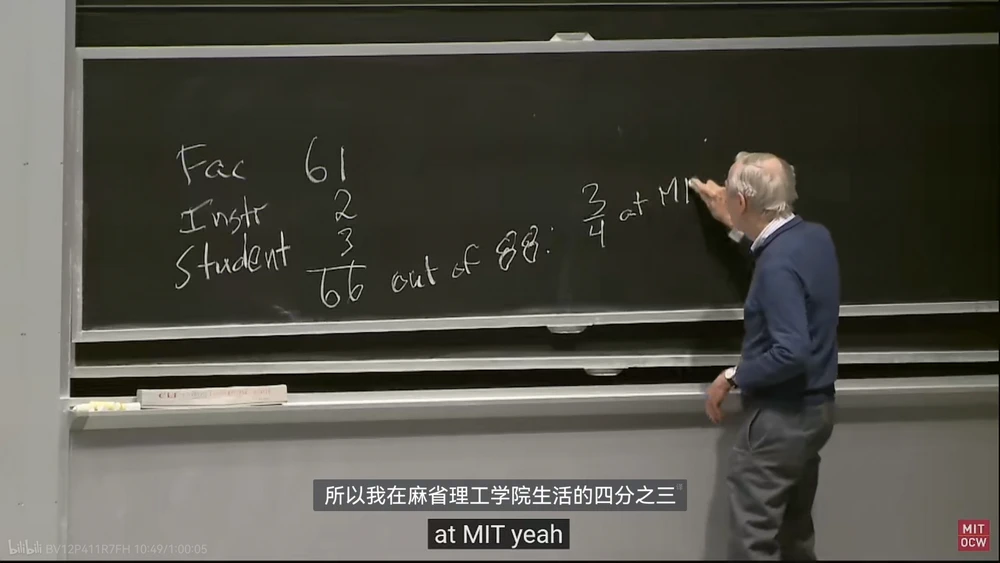 Fac 61
Instr 2
Student 3
66 out of 88: 3/4 at MI
CLI
所以我在麻省理工学院生活的四分之三
at MIT yeah
bilibili BV12P411R7FH 10:49/1:00:05
MIT
OCW